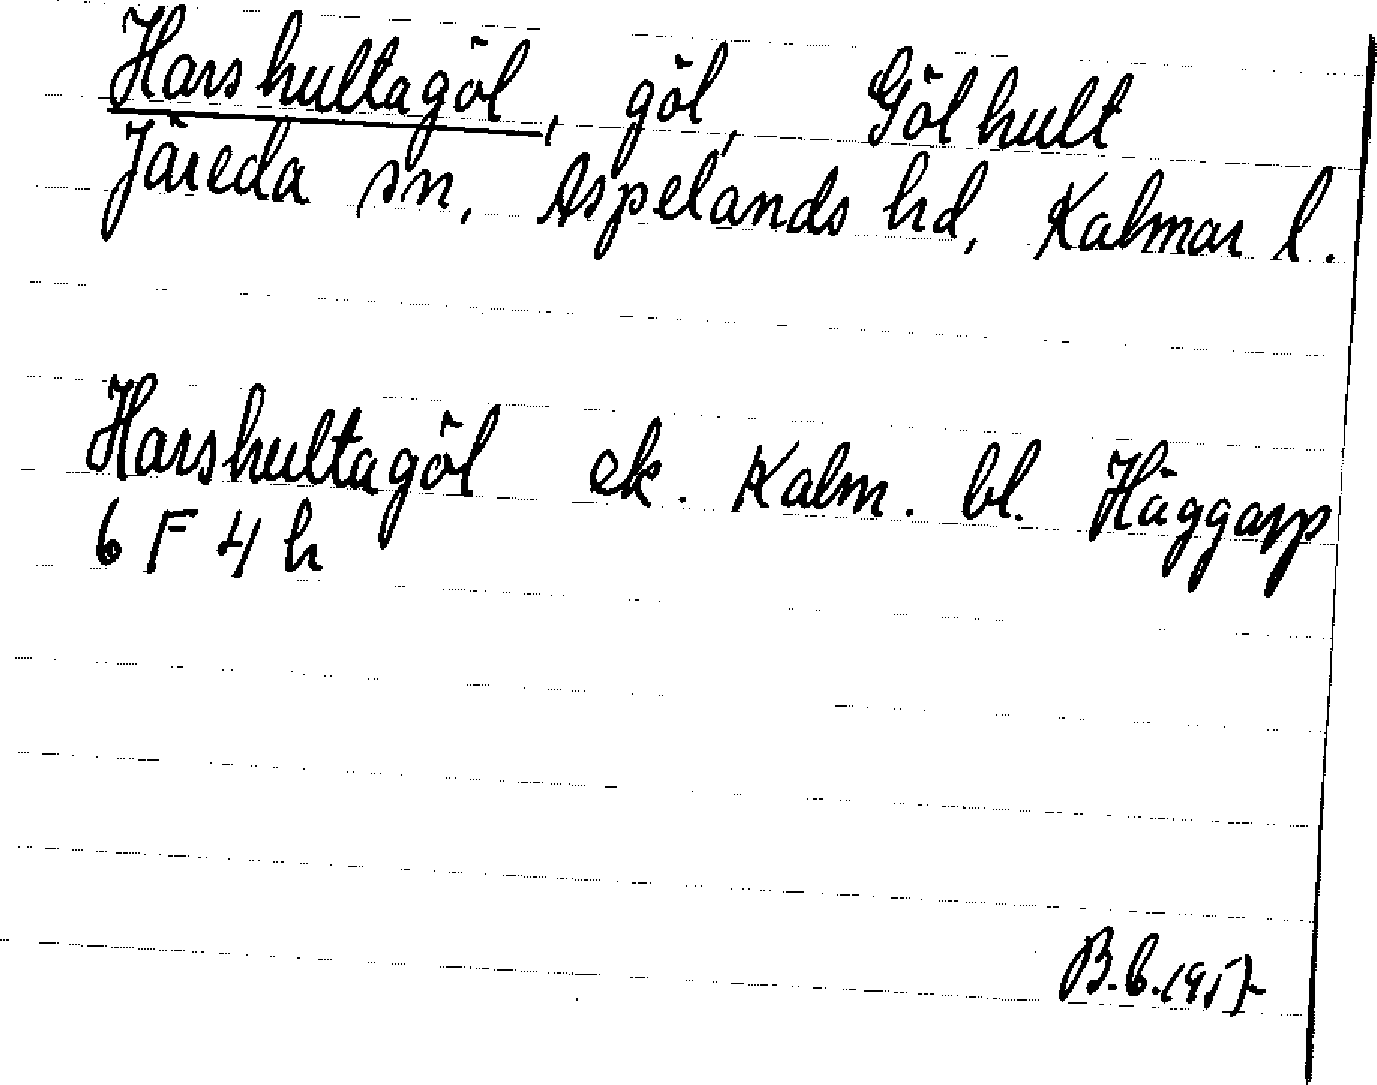 Harshultagöl, göl, Gölhult
Järeda sn, Aspelands hd, Kalmar l.
Harshultagöl ek. Kalm. bl. Häggarp
6 F 4 h
B.b.1957